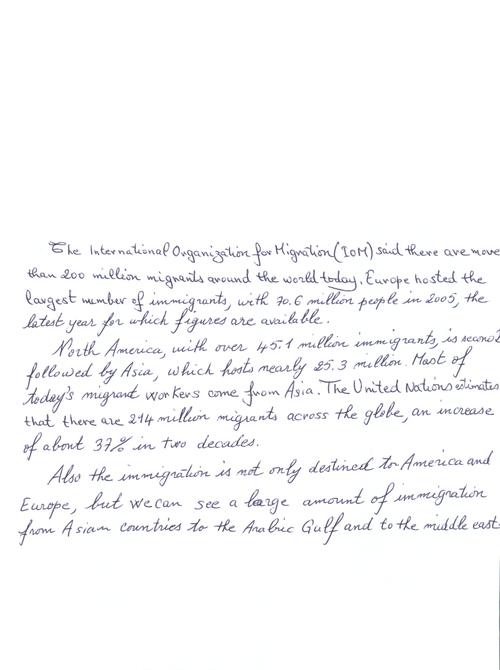 The International Organization for Migration (IoM) said there are more
than 200 million migrants around the world today. Europe hosted the
largest number of immigrants, with 70.6 million people in 2005, the
latest year for which figures are available.
North America, with over 45.1 million immigrants, is second
followed by Asia, which hosts nearly 25.3 million. Most of
today's migrant workers come from Asia. The United Nations estimates
that there are 214 million migrants across the globe, an increase
of about 37% in two decades.
Also the immigration is not only destined to America and
Europe, but we can see a large amount of immigration
from Asian countries to the Arabic Gulf and to the middle east